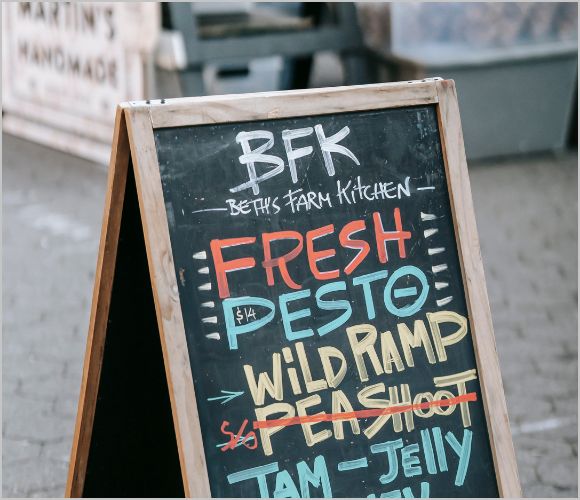 MARTIN'S
HANDMADE
BFK
- BETH'S FARM KITCHEN -
FRESH
PESTO
$14
WILD RAMP
S/O PEASHOOT
JAM - JELLY